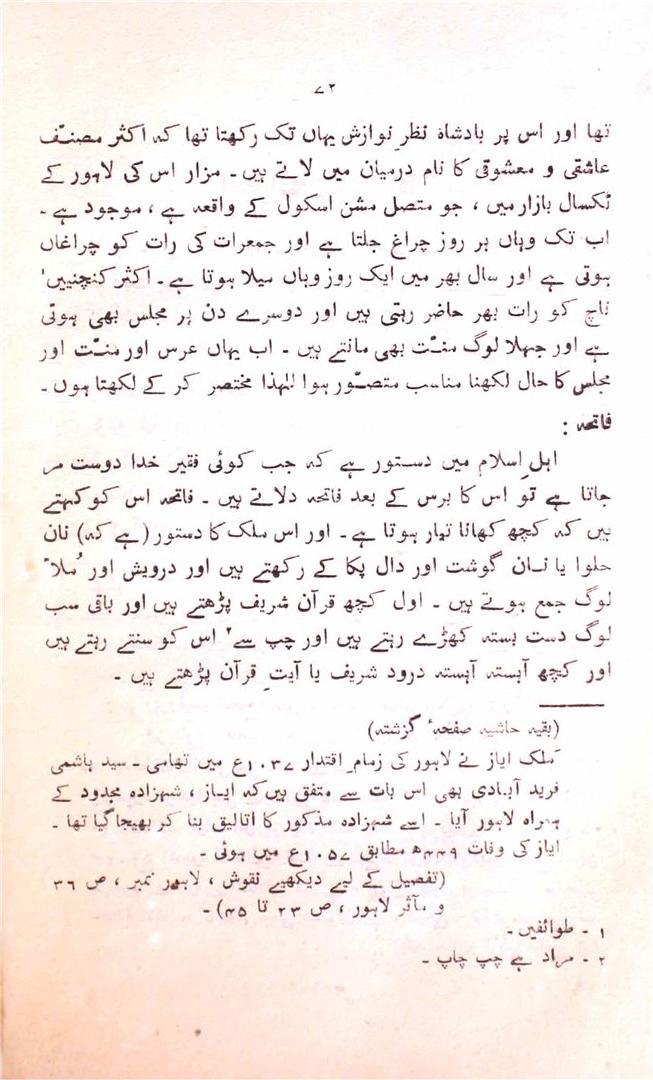 ۷۲
تھا اور اس پر بادشاہ نظرِ نوازش یہاں تک رکھتا تھا کہ اکثر مصنّف
عاشقی و معشوقی کا نام درمیان میں لاتے ہیں ۔ مزار اس کی لاہور کے
ٹکسال بازار میں ، جو متصل مشن اسکول کے واقعہ ہے ، موجود ہے ۔
اب تک وہاں ہر روز چراغ جلتا ہے اور جمعرات کی رات کو چراغاں
ہوتی ہے اور سال بھر میں ایک روز وہاں میلا ہوتا ہے ۔ اکثر کنچنییں۱
ناچ کو رات بھر حاضر رہتی ہیں اور دوسرے دن پر مجلس بھی ہوتی
ہے اور جہلا لوگ منّت بھی مانتے ہیں ۔ اب یہاں عرس اور منّت اور
مجلس کا حال لکھنا مناسب متصّور ہوا لٰہذا مختصر کر کے لکھتا ہوں ۔
فاتحہ :
اہلِ اسلام میں دستور ہے کہ جب کوئی فقیر خدا دوست مر
جاتا ہے تو اس کا برس کے بعد فاتحہ دلاتے ہیں ۔ فاتحہ اس کو کہتے
ہیں کہ کچھ کھانا تیار ہوتا ہے ۔ اور اس ملک کا دستور (ہے کہ) نان
حلوا یا نان گوشت اور دال پکا کے رکھتے ہیں اور درویش اور مُلاّ
لوگ جمع ہوتے ہیں ۔ اول کچھ قرآن شریف پڑھتے ہیں اور باقی سب
لوگ دست بستہ کھڑے رہتے ہیں اور چپ سے۲ اس کو سنتے رہتے ہیں
اور کچھ آہستہ آہستہ درود شریف یا آیتِ قرآن پڑھتے ہیں ۔
(بقیہ حاشیہ صفحہٴ گزشتہ)
ملک ایاز نے لاہور کی زمامِ اقتدار ۱۰۳۷ع میں تھامی ۔ سید ہاشمی
فرید آبادی بھی اس بات سے متفق ہیں کہ ایاز ، شہزادہ مجدود کے
ہمراہ لاہور آیا ۔ اسے شہزادہ مذکور کا اتالیق بنا کر بھیجا گیا تھا ۔
ایاز کی وفات ۴۴۹ھ مطابق ۱۰۵۷ع میں ہوئی ۔
(تفصیل کے لیے دیکھیے نقوش ، لاہور نمبر ، ص ۳۶
و مآثر لاہور ، ص ۲۳ تا ۴۵) ۔
۱ ۔ طوائفیں ۔
۲ ۔ مراد ہے چپ چاپ ۔